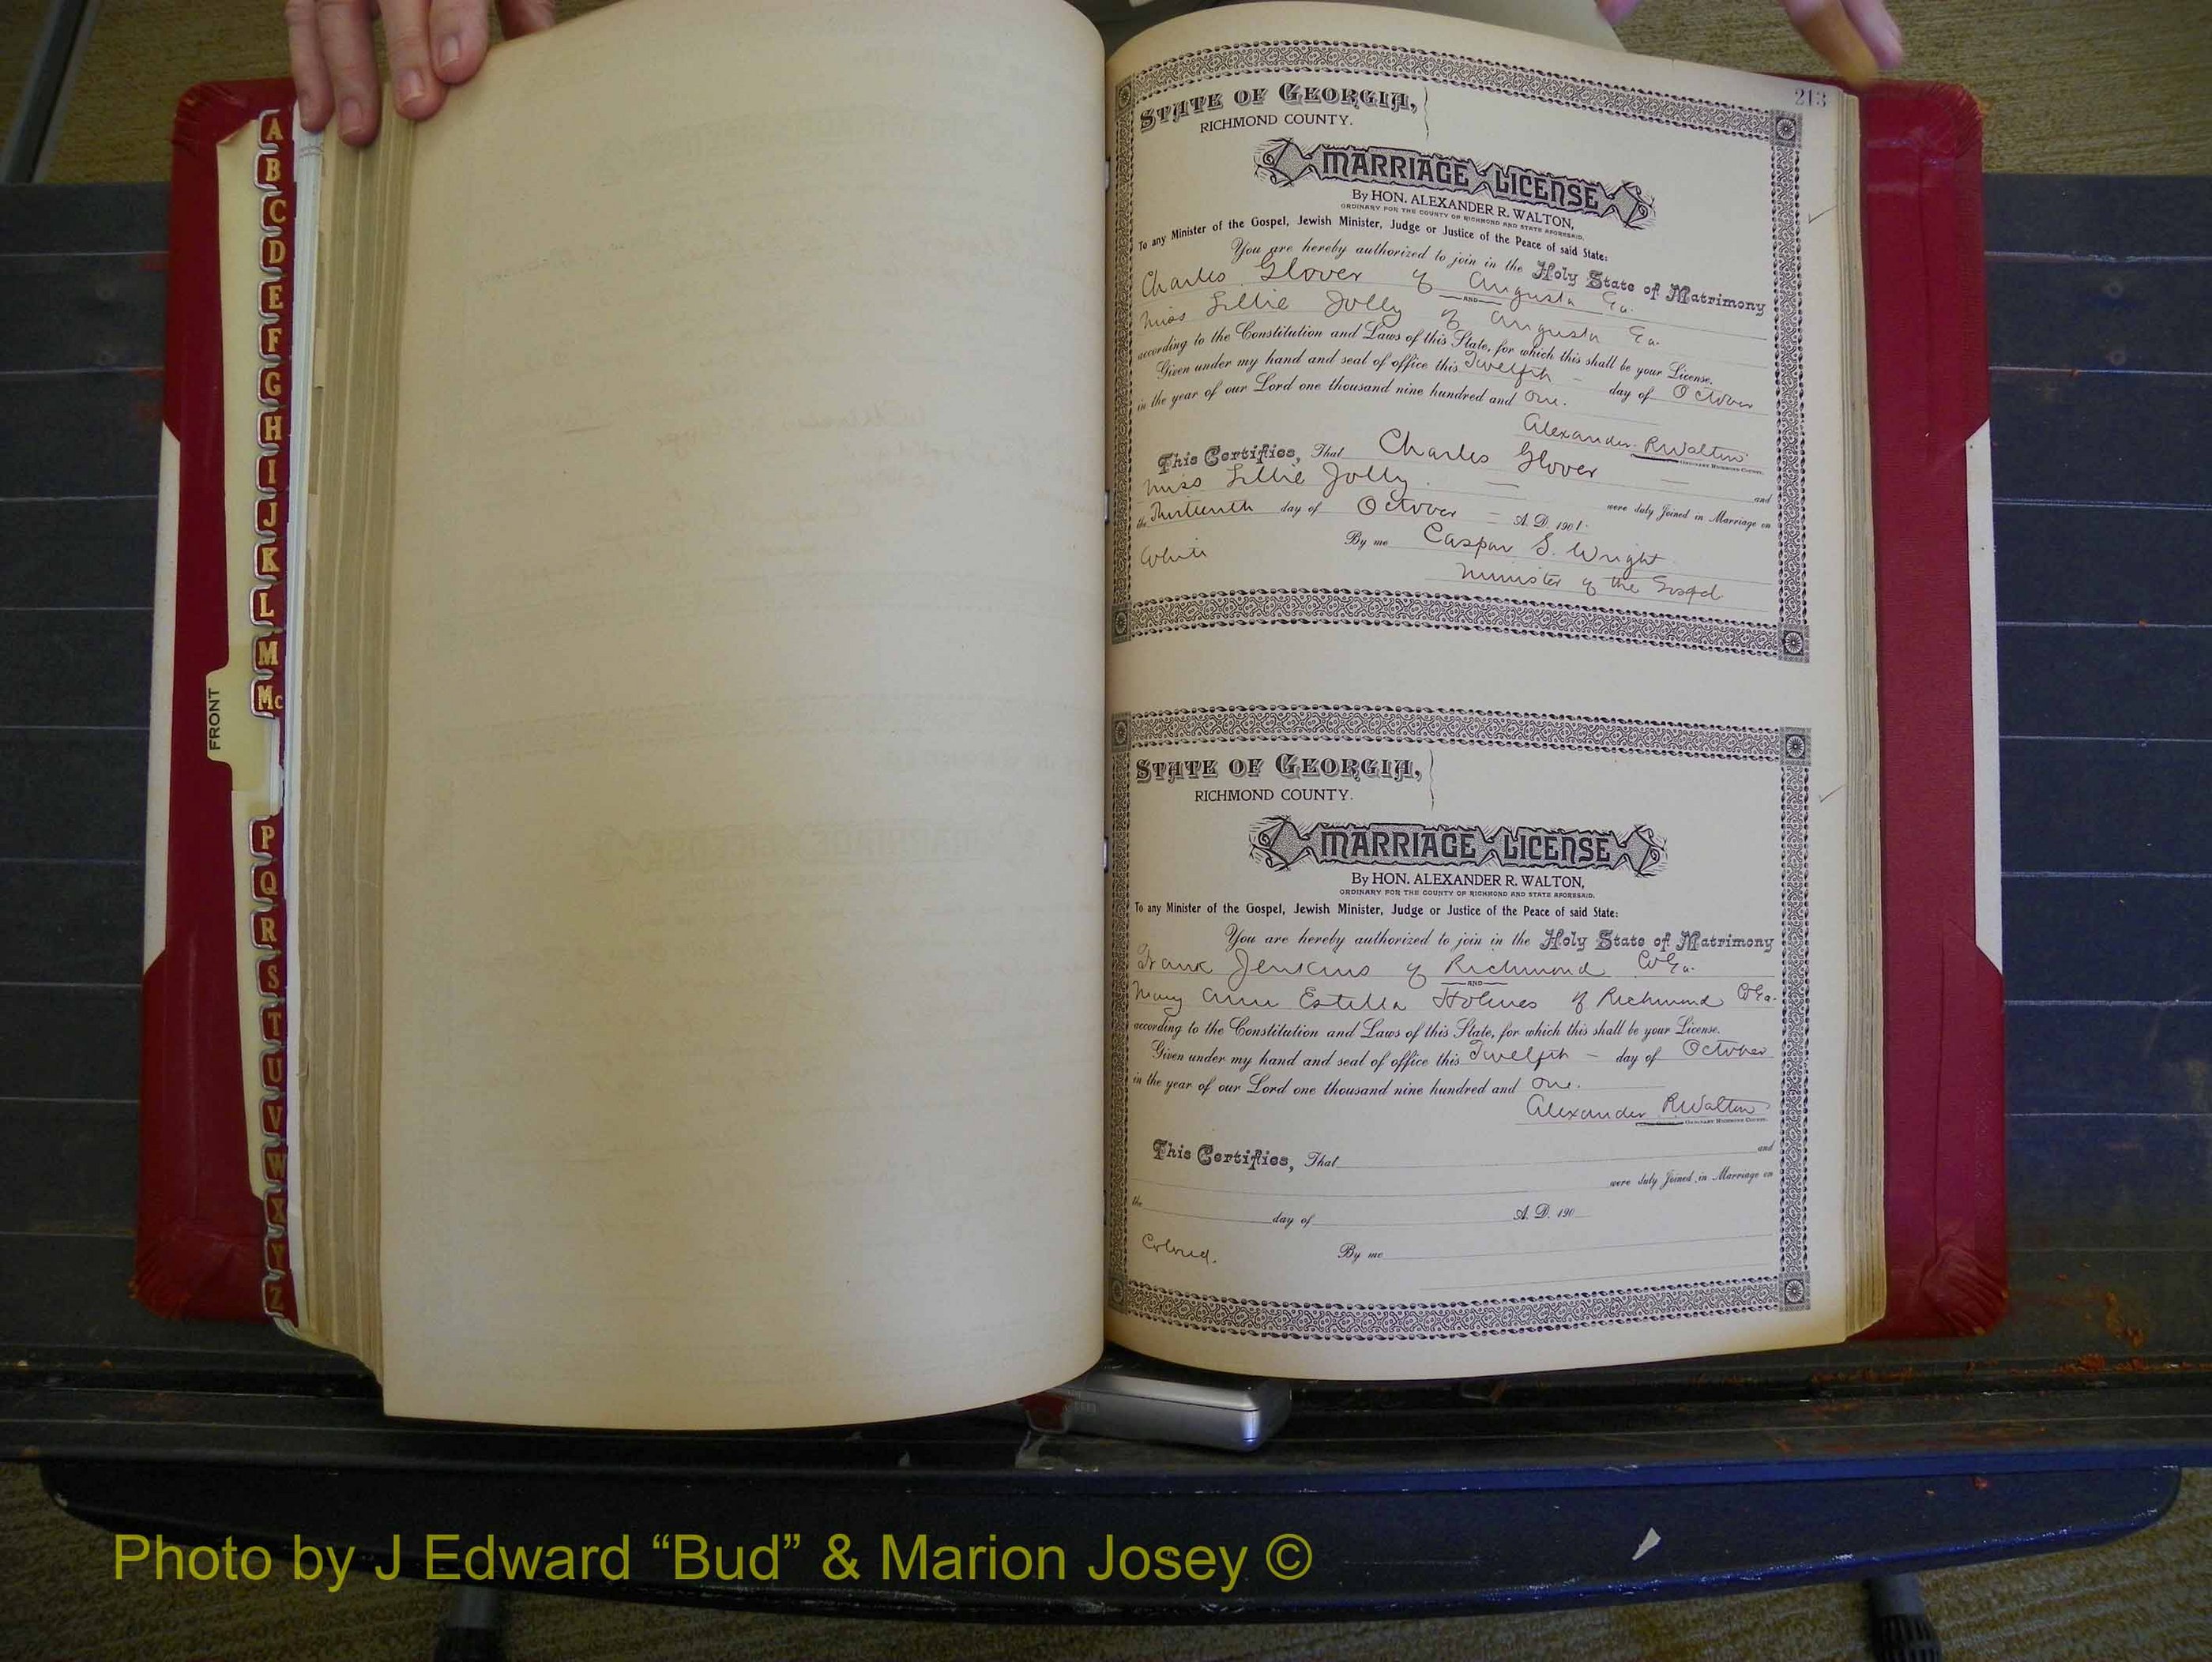 A
B
C
D
E
F
G
H
I
J
K
L
M
Mc
FRONT
P
Q
R
S
T
U
V
W
X
Y
Z
213
STATE OF GEORGIA,
RICHMOND COUNTY.
MARRIAGE LICENSE
By HON. ALEXANDER R. WALTON,
ORDINARY FOR THE COUNTY OF RICHMOND AND STATE AFORESAID.
To any Minister of the Gospel, Jewish Minister, Judge or Justice of the Peace of said State:
You are hereby authorized to join in the Holy State of Matrimony
Charles Glover of Augusta Ga.
AND
Miss Lillie Jolly of Augusta Ga.
according to the Constitution and Laws of this State, for which this shall be your License.
Given under my hand and seal of office this Twelfth day of October
in the year of our Lord one thousand nine hundred and One.
Alexander R Walton
ORDINARY RICHMOND COUNTY.
This Certifies, That Charles Glover and
Miss Lillie Jolly were duly Joined in Marriage on
the Thirteenth day of October A. D. 1901.
White By me Caspar S. Wright
Minister of the Gospel
STATE OF GEORGIA,
RICHMOND COUNTY.
MARRIAGE LICENSE
By HON. ALEXANDER R. WALTON,
ORDINARY FOR THE COUNTY OF RICHMOND AND STATE AFORESAID.
To any Minister of the Gospel, Jewish Minister, Judge or Justice of the Peace of said State:
You are hereby authorized to join in the Holy State of Matrimony
Frank Jenkins of Richmond Co Ga.
AND
Mary Ann Estella Holmes of Richmond Co Ga.
according to the Constitution and Laws of this State, for which this shall be your License.
Given under my hand and seal of office this Twelfth day of October
in the year of our Lord one thousand nine hundred and One.
Alexander R Walton
ORDINARY RICHMOND COUNTY.
This Certifies, That and
were duly Joined in Marriage on
the day of A. D. 190
Colored. By me
Photo by J Edward “Bud” & Marion Josey ©